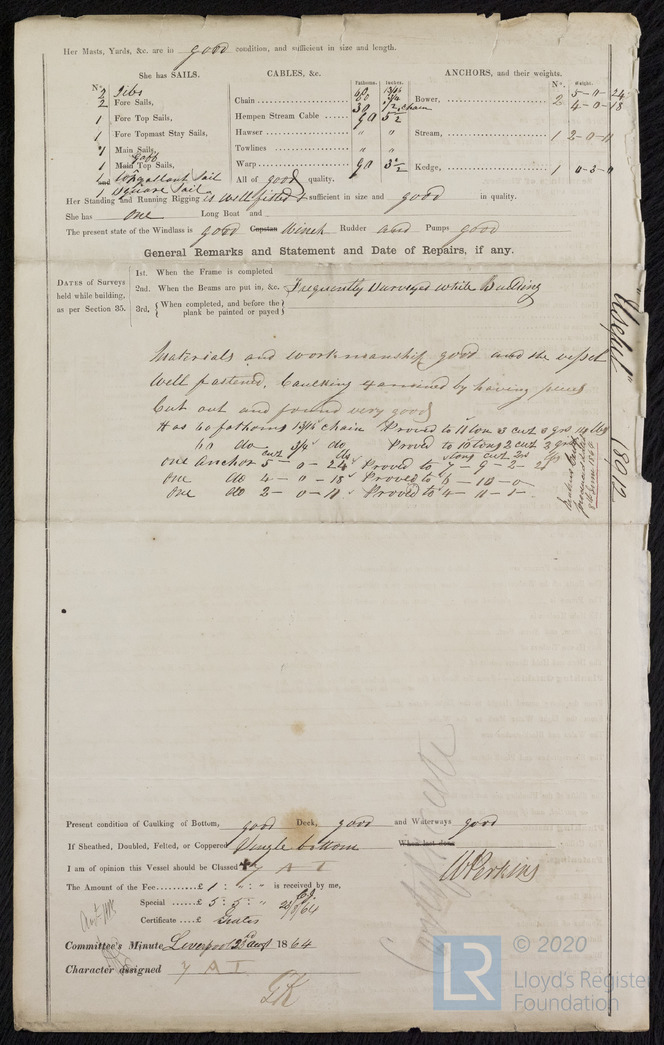 Her Masts, Yards, &c. are in good condition, and sufficient in size and length.
She has SAILS. CABLES, &c. Fathoms. Inches. ANCHORS, and their weights. Nº. Weight.
Nº.
2 Jibs
2 Fore Sails, Chain 60 13/16 Bower, 2 5-0-24
60 3/4 4-0-18
1 Fore Top Sails, 30 1/2 chain
Hempen Stream Cable 90 5 1/2
1 Fore Topmast Stay Sails, Hawser " " Stream, 1 2-0-11
1 Main Sails, Towlines " "
Gaff
1 Main Top Sails, Warp 90 3 1/2 Kedge, 1 0-3-0
1 and topgallant Sail All of good quality.
1 Square Sail
Her Standing and Running Rigging is well fitted & sufficient in size and good in quality.
She has one Long Boat and
The present state of the Windlass is good Capstan Winch Rudder and Pumps good
General Remarks and Statement and Date of Repairs, if any.
DATES of Surveys held while building, as per Section 35.
1st. When the Frame is completed
2nd. When the Beams are put in, &c. Frequently Surveyed while Building
3rd, When completed, and before the plank be painted or payed
Materials and workmanship good and the vessel
Well fastened, Caulking examined by having pieces
Cut out and found very good
Has 60 fathoms 13/16 chain Proved to 11 ton 3 cwt 0 qrs
60 do 3/4 do Proved to 10 tons 2 cwt 2 qrs
one anchor 5-0-24 Proved to 7-9-2-2
one do 4-0-18 Proved to 6-10-0
one do 2-0-11 Proved to 4-11-1-
"Useful" 18012
Present condition of Caulking of Bottom, good Deck, good and Waterways good
If Sheathed, Doubled, Felted, or Coppered Single bottom When last done
I am of opinion this Vessel should be Classed 7 A 1
W Perkins
The Amount of the Fee £ 1 : " : " is received by me,
Special £ 5 : 5 : "
Certificate £ Gratis
Committee's Minute Liverpool 23 Augt 1864
Character assigned 7 A 1
© 2020
LR
Lloyd's Register
Foundation